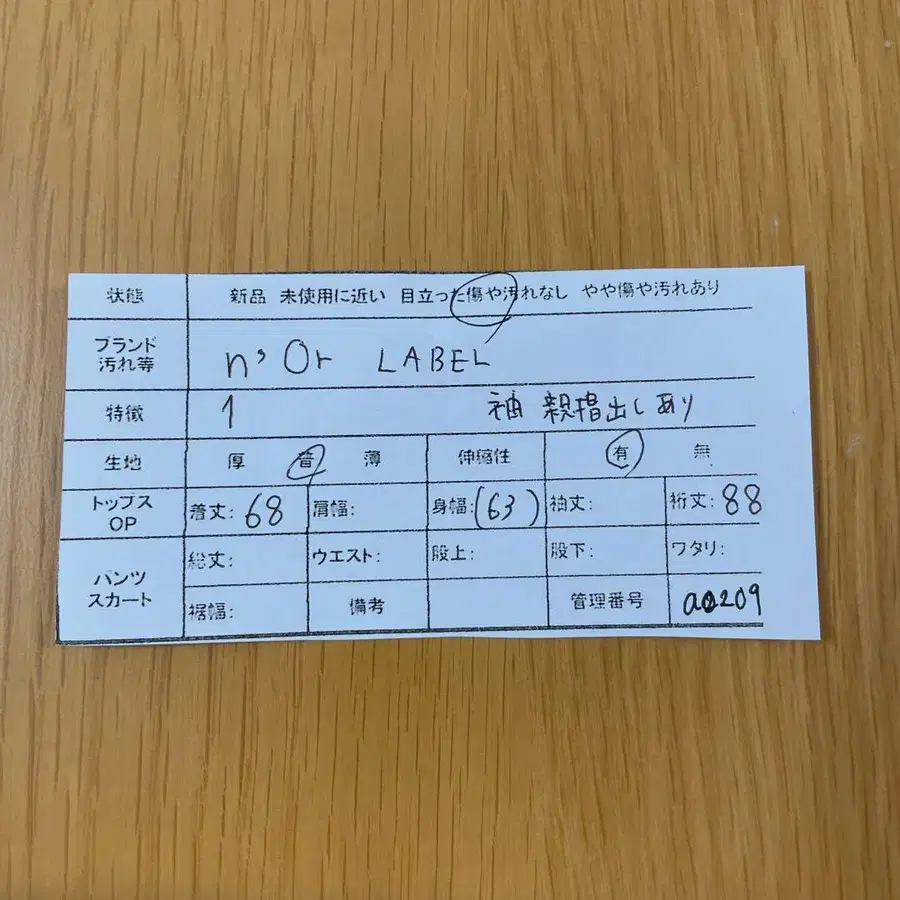 状態 新品 未使用に近い 目立った傷や汚れなし やや傷や汚れあり
ブランド
汚れ等 n'Or LABEL
特徴 1 袖 親指出しあり
生地 厚 普 薄 伸縮性 有 無
トップス
OP 着丈: 68 肩幅: 身幅: (63) 袖丈: 裄丈: 88
パンツ
スカート 総丈: ウエスト: 股上: 股下: ワタリ:
裾幅: 備考 管理番号 a0209